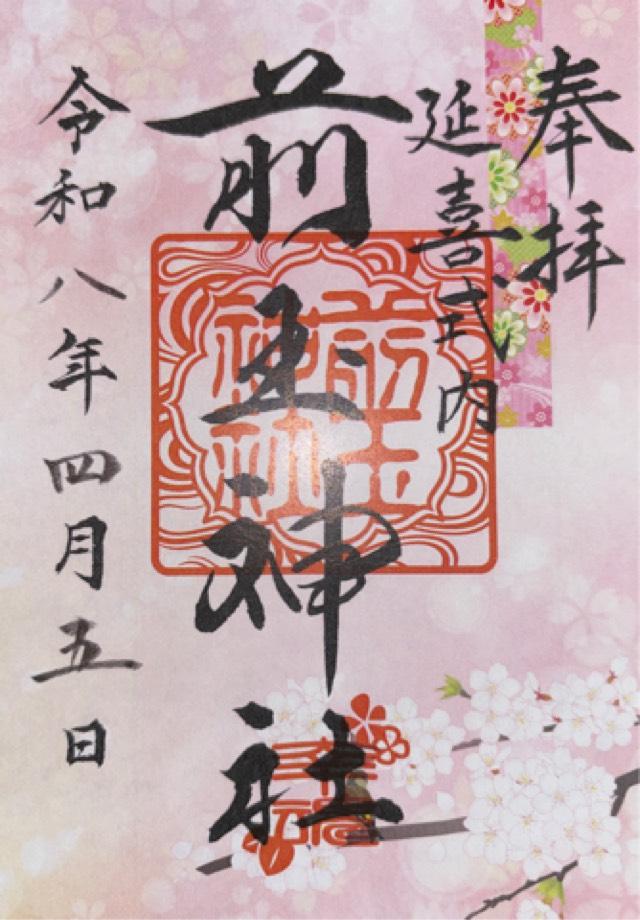 奉拝
延喜式内
前玉神社
前玉
神社
令和八年四月五日